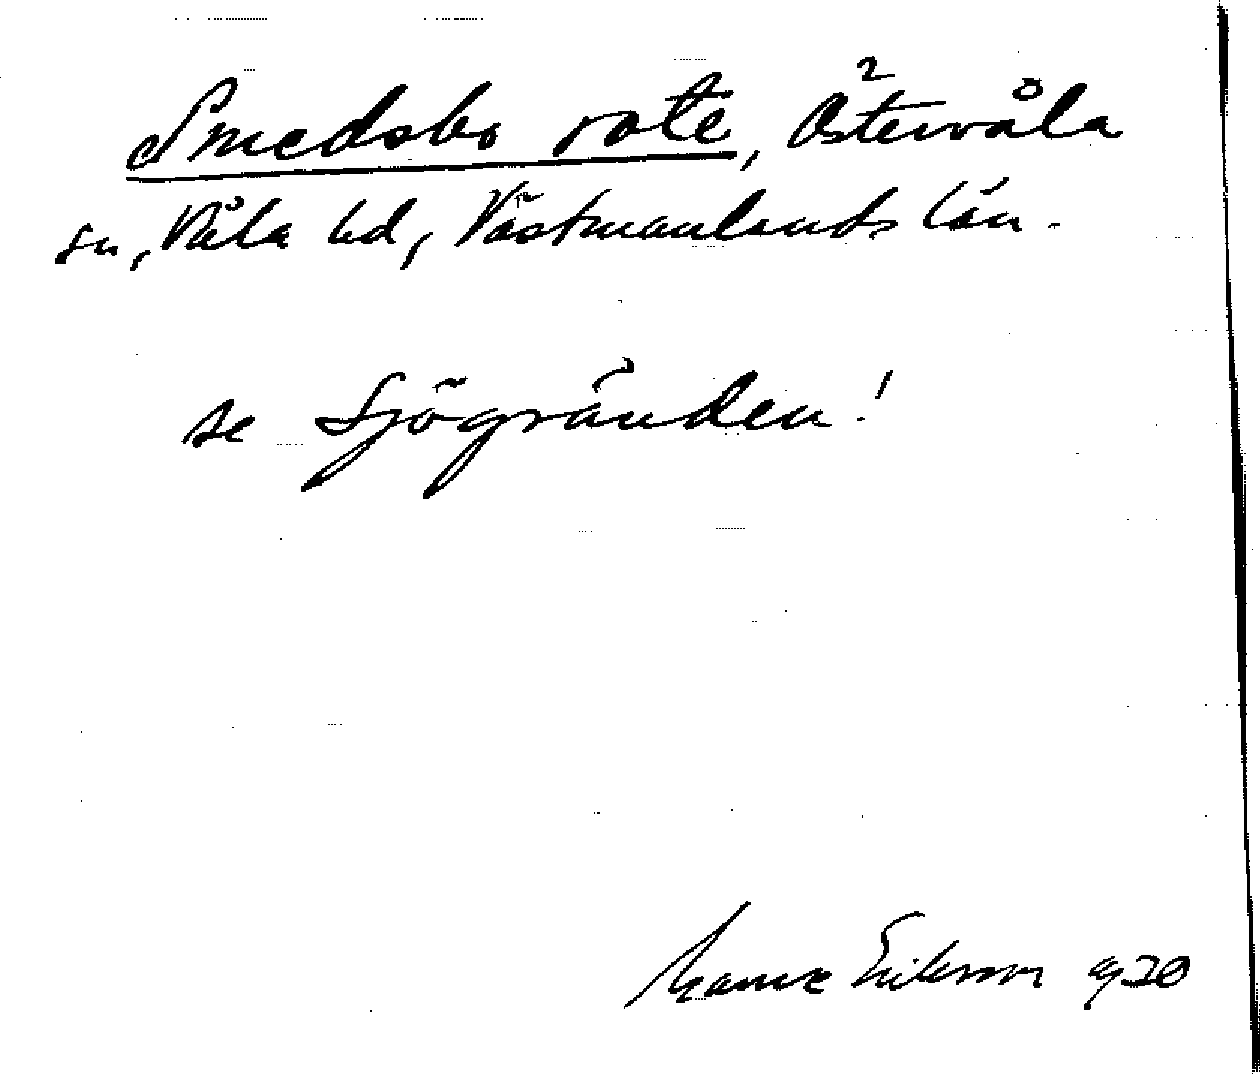 Smedsbo rote, Östervåla
sn, Våla hd, Västmanlands län.
se Sjögränden!
Manne Eriksson 1920